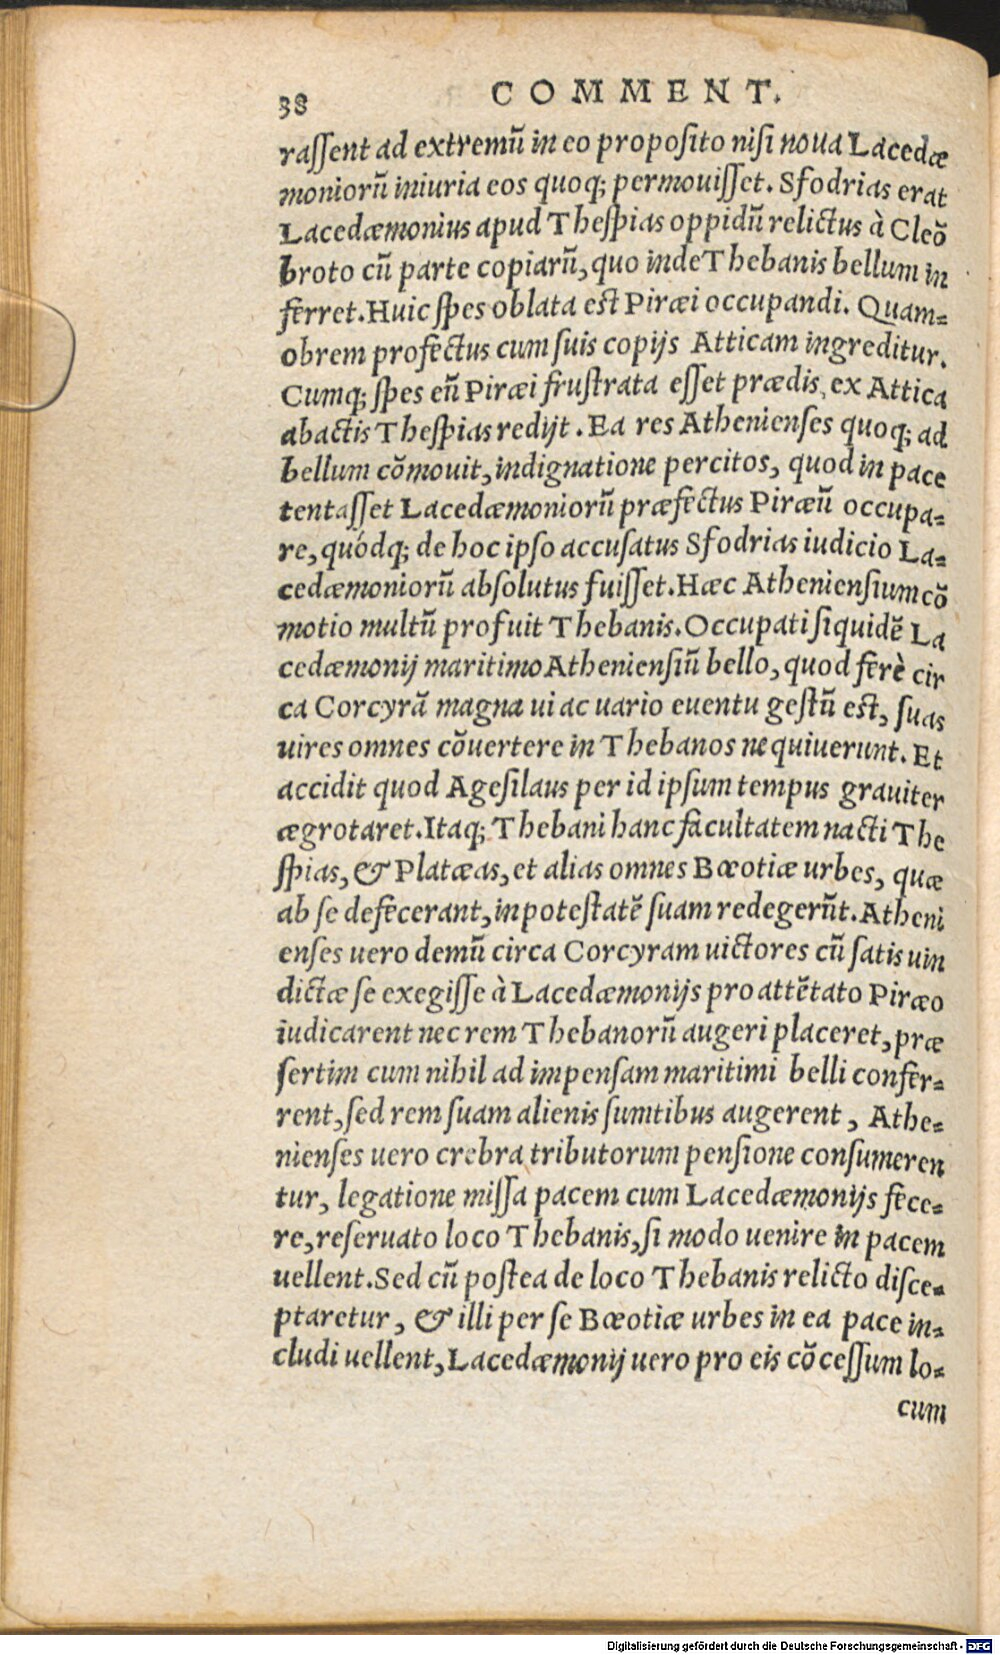 38 COMMENT.
raſſent ad extremũ in eo propoſito niſi noua Lacedæ
moniorũ iniuria eos quoq; permouiſſet. Sfodrias erat
Lacedæmonius apud Theſpias oppidũ relictus à Cleõ
broto cũ parte copiarũ, quo inde Thebanis bellum in
ferret. Huic ſpes oblata eſt Piræi occupandi. Quam-
obrem profectus cum ſuis copijs Atticam ingreditur.
Cumq; ſpes eũ Piræi fruſtrata eſſet prædis, ex Attica
abactis Theſpias redijt. Ea res Athenienſes quoq; ad
bellum cõmouit, indignatione percitos, quod in pace
tentaſſet Lacedæmoniorũ præfectus Piræũ occupa-
re, quódq; de hoc ipſo accuſatus Sfodrias iudicio La-
cedæmoniorũ abſolutus fuiſſet. Hæc Athenienſium cõ
motio multũ profuit Thebanis. Occupati ſiquidẽ La
cedæmonij maritimo Athenienſiũ bello, quod ferè cir
ca Corcyrã magna ui ac uario euentu geſtũ eſt, ſuas
uires omnes cõuertere in Thebanos nequiuerunt. Et
accidit quod Ageſilaus per id ipſum tempus grauiter
ægrotaret. Itaq; Thebani hanc facultatem nacti The
ſpias, & Platæas, et alias omnes Bœotiæ urbes, quæ
ab ſe defecerant, in poteſtatẽ ſuam redegerũt. Atheni
enſes uero demũ circa Corcyram uictores cũ ſatis uin
dictæ ſe exegiſſe à Lacedæmonijs pro attẽtato Piræo
iudicarent nec rem Thebanorũ augeri placeret, præ
ſertim cum nihil ad impenſam maritimi belli confer-
rent, ſed rem ſuam alienis ſumtibus augerent, Athe-
nienſes uero crebra tributorum penſione conſumeren
tur, legatione miſſa pacem cum Lacedæmonijs fece-
re, reſeruato loco Thebanis, ſi modo uenire in pacem
uellent. Sed cũ poſtea de loco Thebanis relicto diſce-
ptaretur, & illi per ſe Bœotiæ urbes in ea pace in-
cludi uellent, Lacedæmonij uero pro eis cõceſſum lo-
cum
Digitalisierung gefördert durch die Deutsche Forschungsgemeinschaft - DFG